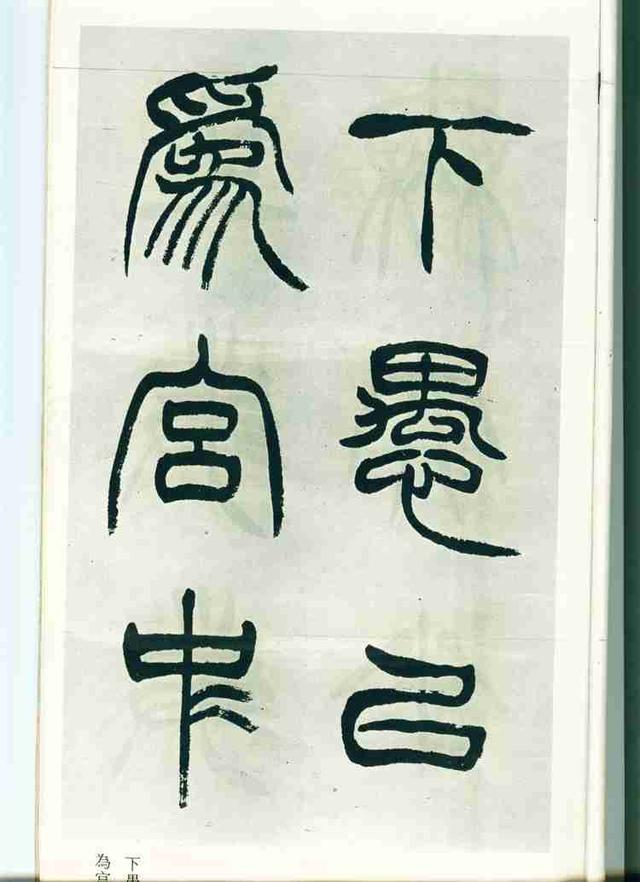 下愚以
爲宮中
下愚
為宮